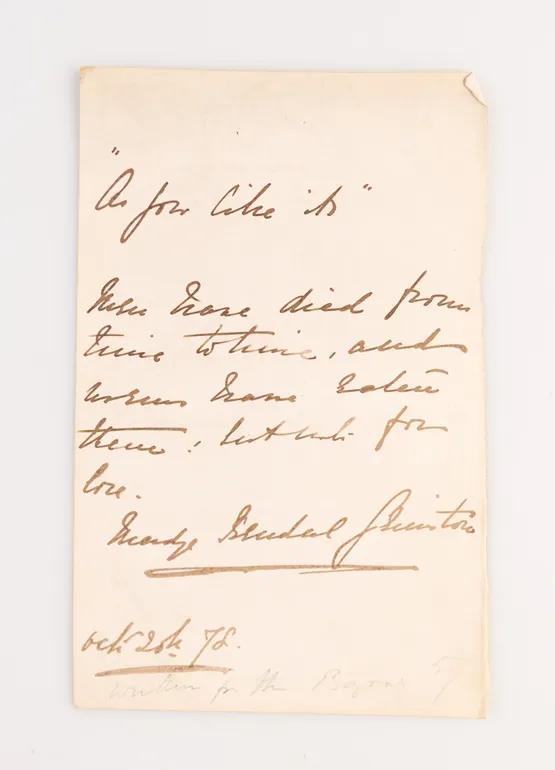 "As you like it"
Men have died from
time to time, and
worms have eaten
them; but not for
love.
Madge Kendal Grimston
Oct 20th 78.
written for the